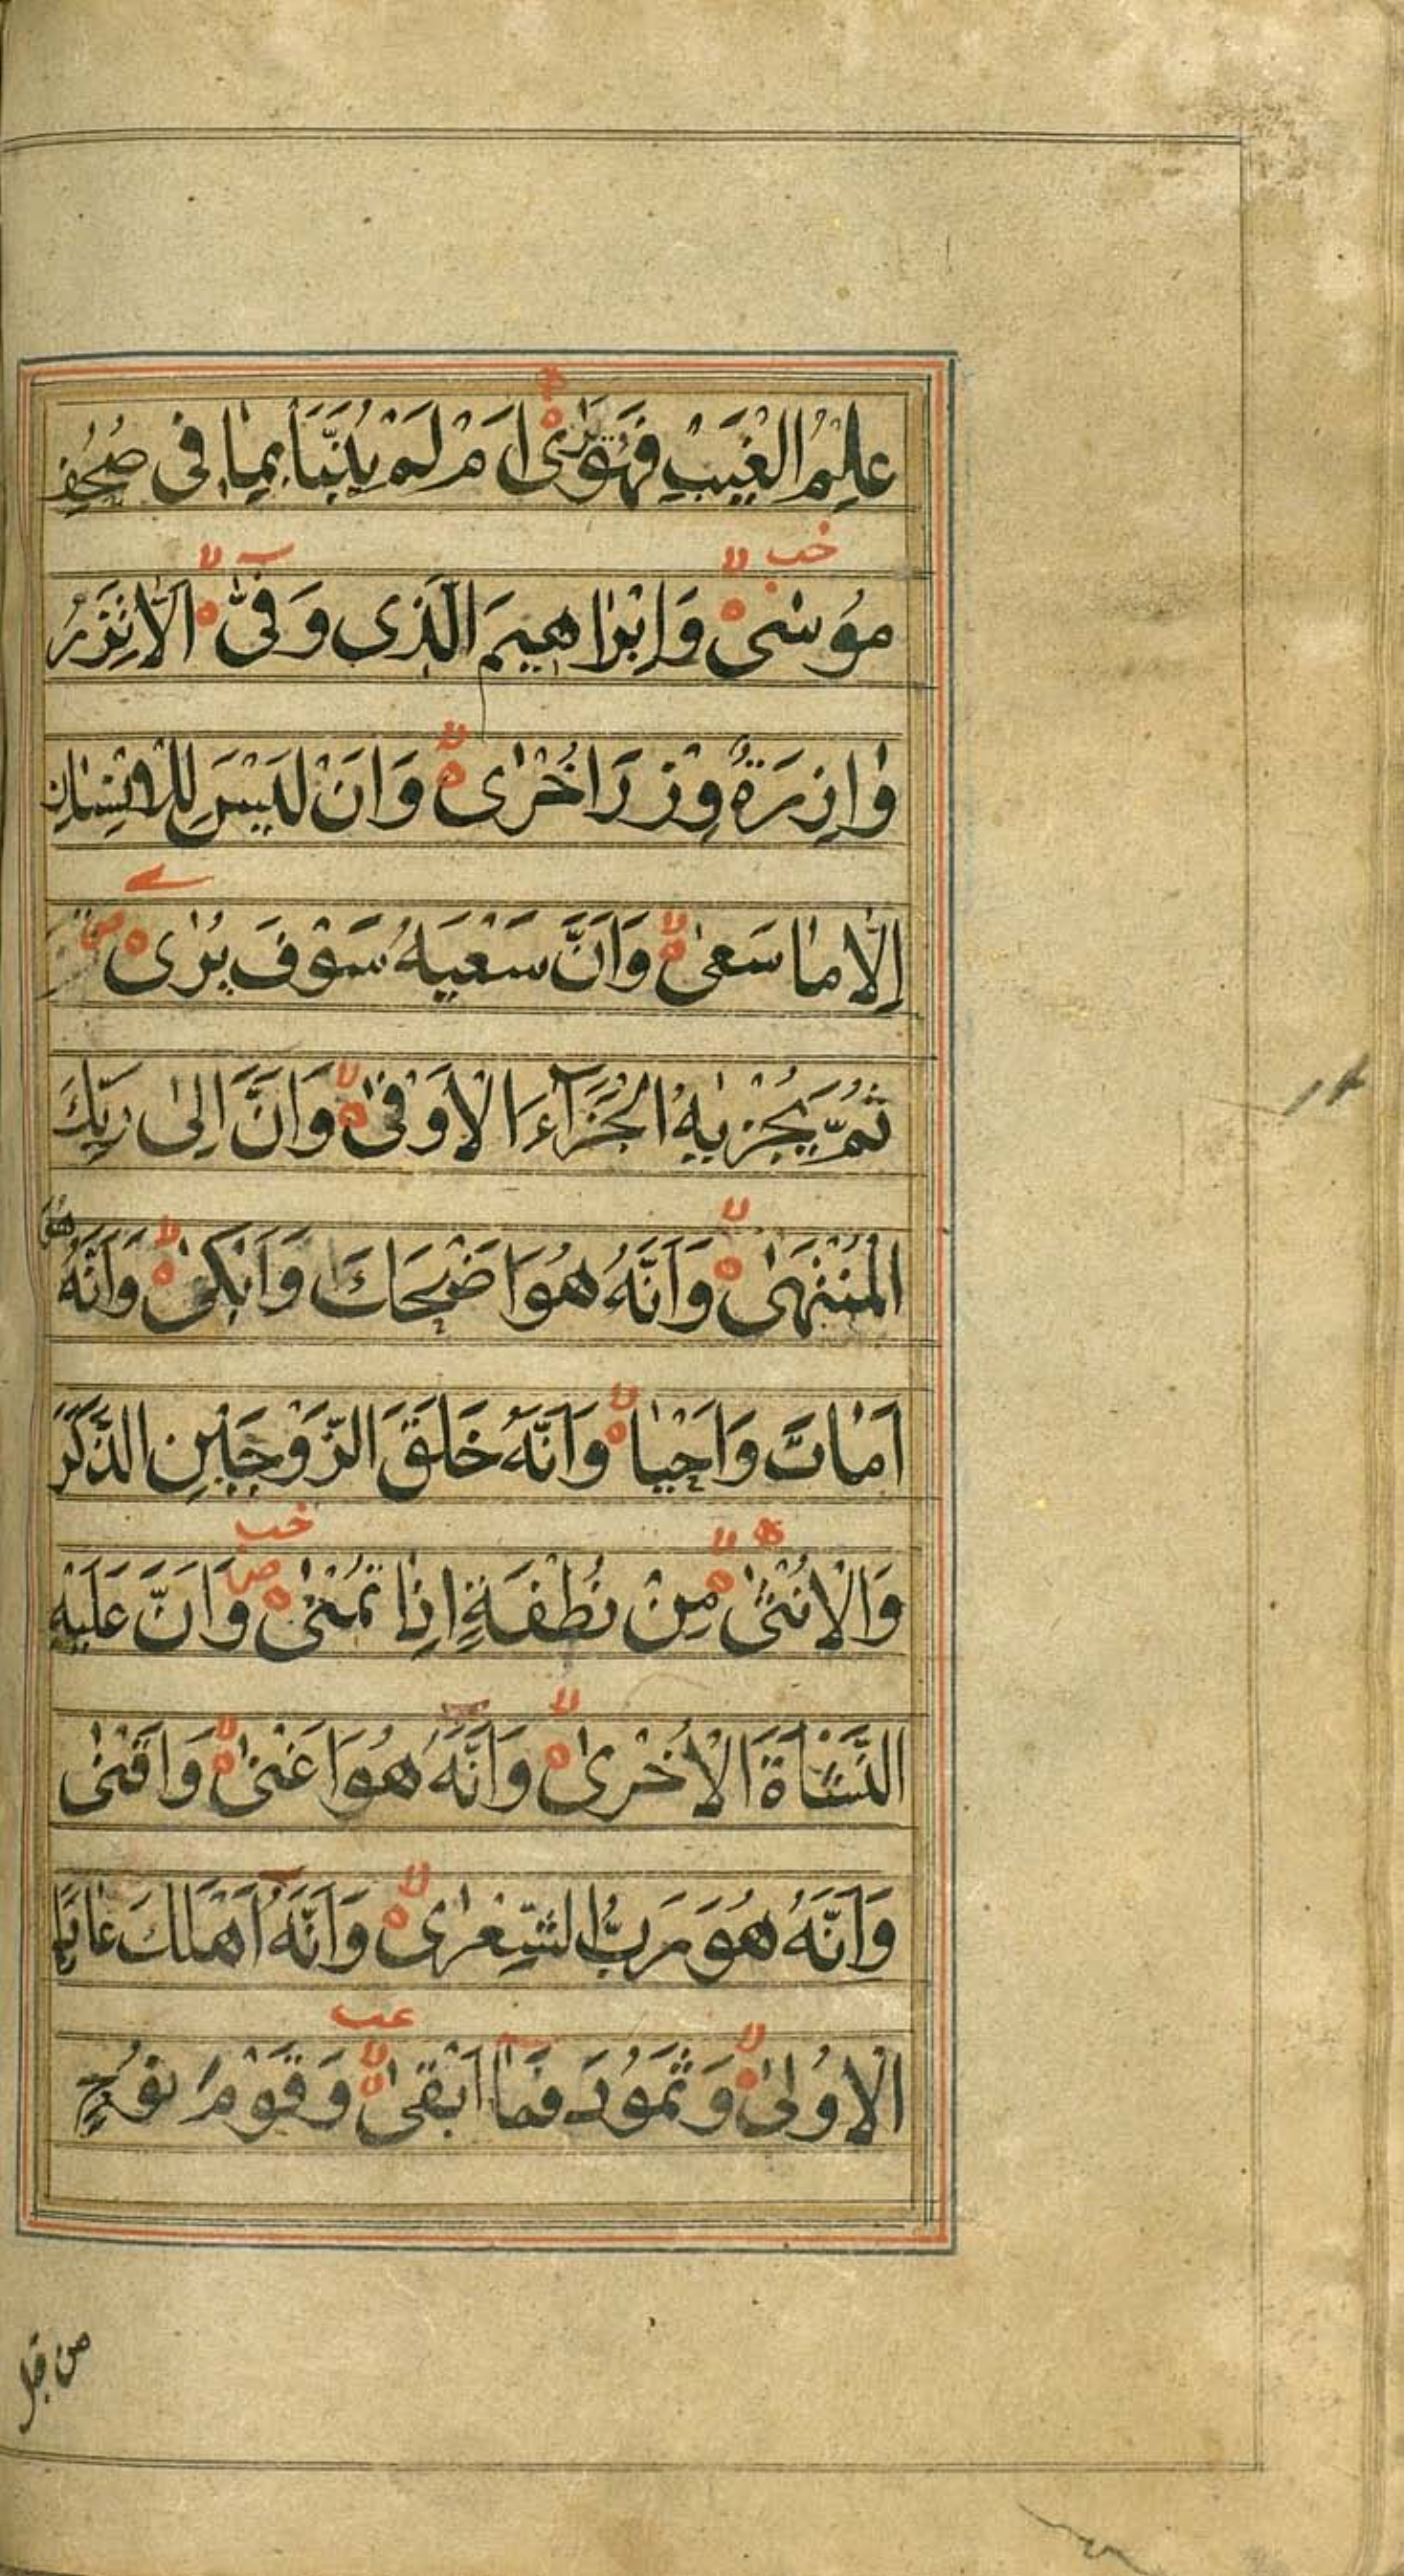 عِلْمُ الْغَيْبِ فَهُوَ يَرٰى اَمْ لَمْ يُنَبَّأْ بِمَا فِى صُحُفِ
مُوْسٰى وَاِبْرَاهِيْمَ الَّذِى وَفّٰى اَلَّا تَزِرُ
وَازِرَةٌ وِزْرَ اُخْرٰى وَاَنْ لَيْسَ لِلْاِنْسَانِ
اِلَّا مَا سَعٰى وَاَنَّ سَعْيَهُ سَوْفَ يُرٰى
ثُمَّ يُجْزٰيهُ الْجَزَآءَ الْاَوْفٰى وَاَنَّ اِلٰى رَبِّكَ
الْمُنْتَهٰى وَاَنَّهُ هُوَ اَضْحَكَ وَاَبْكٰى وَاَنَّهُ هُوَ
اَمَاتَ وَاَحْيَا وَاَنَّهُ خَلَقَ الزَّوْجَيْنِ الذَّكَرَ
وَالْاُنْثٰى مِنْ نُطْفَةٍ اِذَا تُمْنٰى وَاَنَّ عَلَيْهِ
النَّشْاَةَ الْاُخْرٰى وَاَنَّهُ هُوَ اَغْنٰى وَاَقْنٰى
وَاَنَّهُ هُوَ رَبُّ الشِّعْرٰى وَاَنَّهُ اَهْلَكَ عَادًا
الْاُوْلٰى وَثَمُوْدَ فَمَا اَبْقٰى وَقَوْمَ نُوْحٍ
من قبل